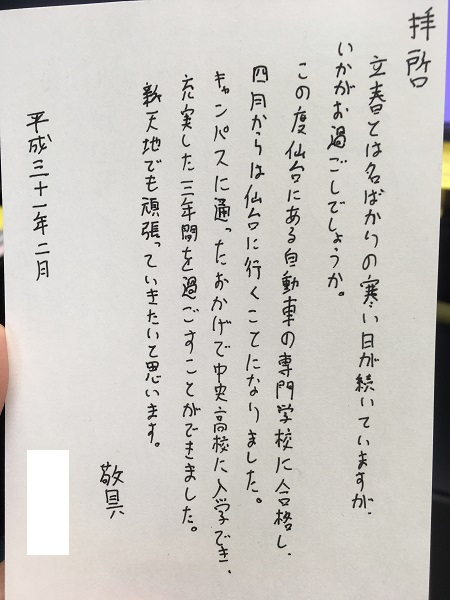 拝啓
立春とは名ばかりの寒い日が続いていますが、
いかがお過ごしでしょうか。
この度仙台にある自動車の専門学校に合格し、
四月からは仙台に行くことになりました。
キャンパスに通ったおかげで中央高校に入学でき、
充実した三年間を過ごすことができました。
新天地でも頑張っていきたいと思います。
敬具
平成三十一年二月